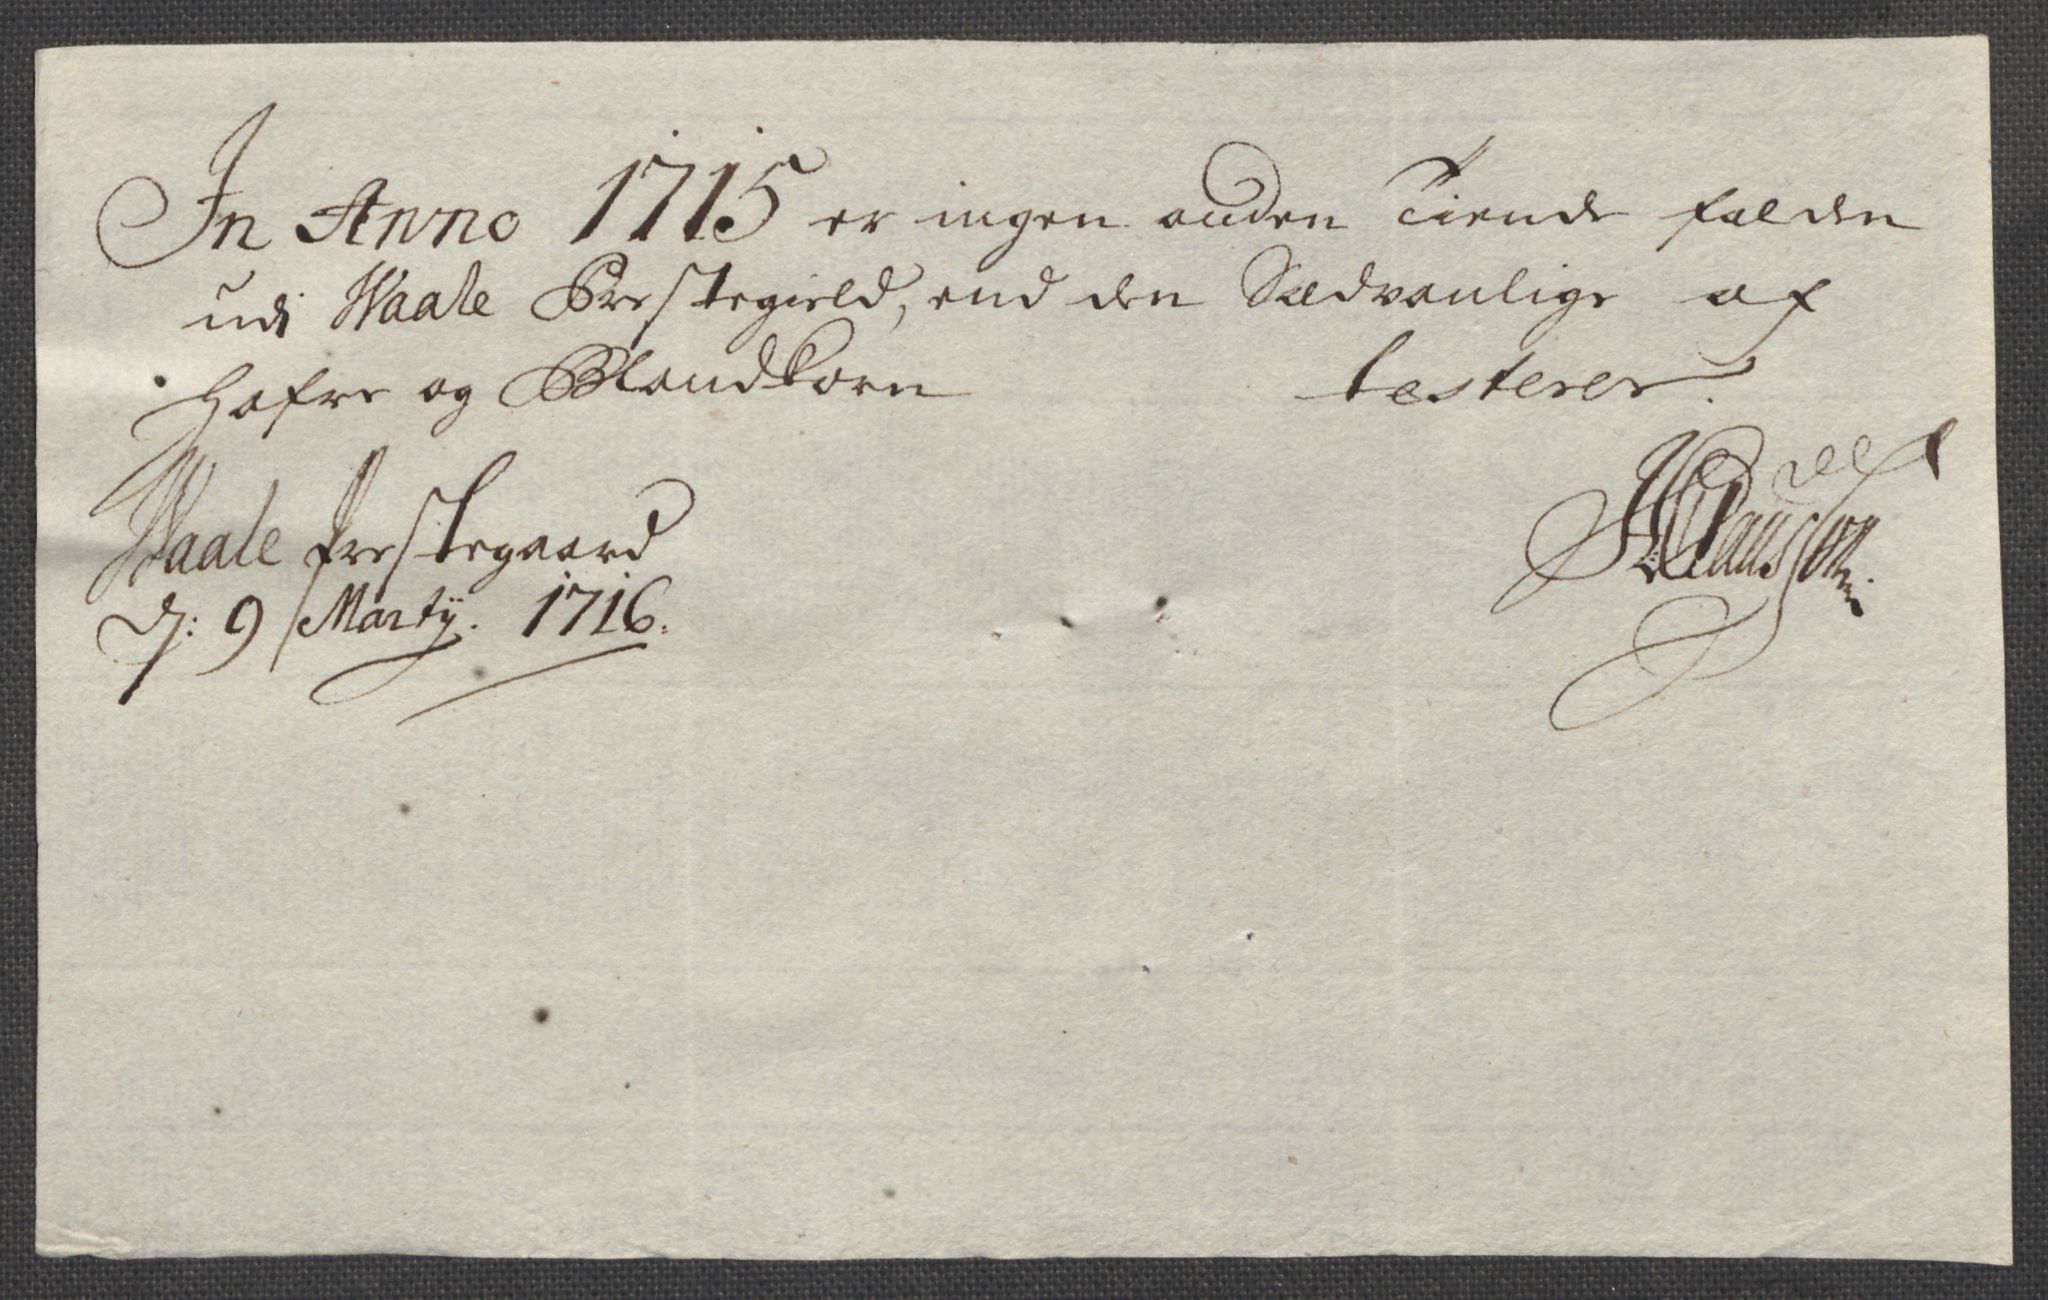 In Anno 1715 er ingen anden Tiende falden
udi Waale Prestegield, end den Sædvanlige af
Hafre og Blandkorn testerer.
Waale Prestegaard
d: 9 Martij. 1716.
Claussøn